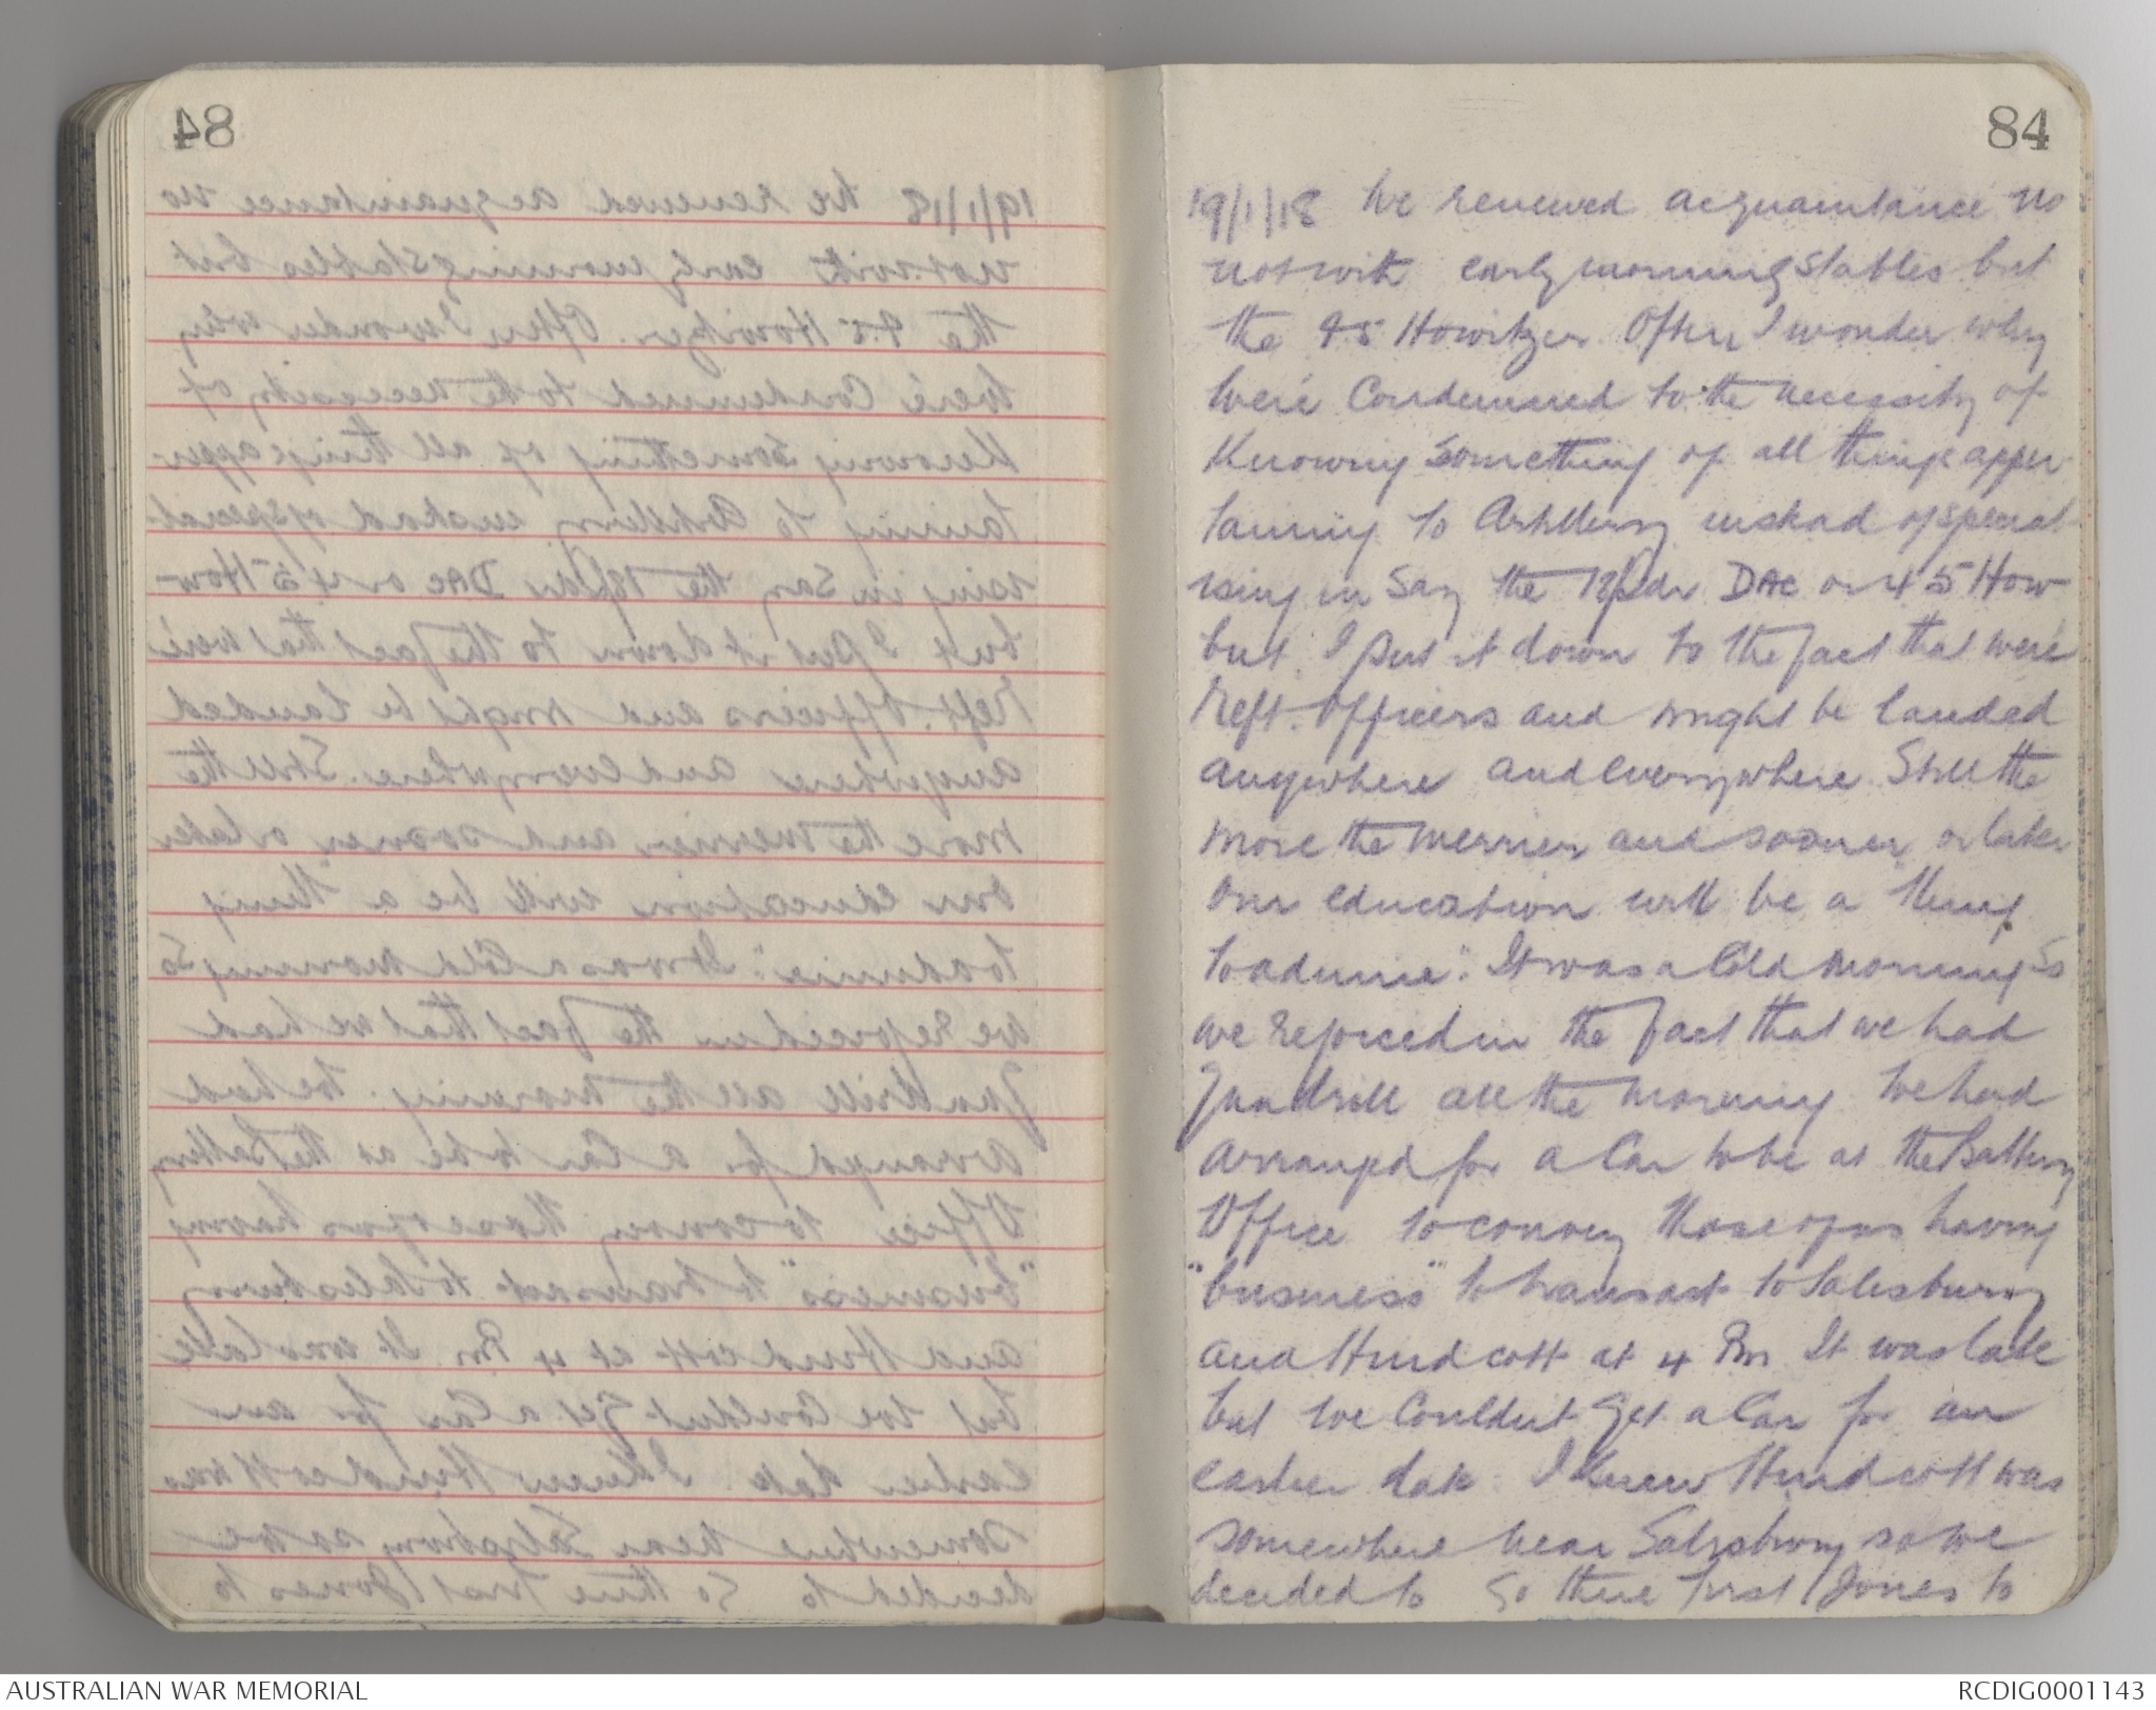 84
19/1/18 We renewed acquaintance no
not with early morning stables but
the 4.5 Howitzer. Often I wonder why
we're Condemned to the necessity of
Knowing Something of all things apper
taining to Artillery instead of special
ising in Say the 18pdr DAC or 4.5 How
but I put it down to the fact that we're
Reft. Officers and might be landed
anywhere and everywhere. Still the
more the merrier and sooner or later
our education will be a "thing
to admire". It was a Cold morning So
we rejoiced in the fact that we had
Gundrill all the morning. We had
arranged for a Car to be at the Battery
Office to convey those of us having
"business" to transact to Salesbury
and Hurdcott at 4 Pm. It was late
but we Couldnt Get a Car for an
earlier date. I Knew Hurdcott was
somewhere near Salisbury so we
decided to Go there first (Jones to
84
AUSTRALIAN WAR MEMORIAL
RCDIG0001143